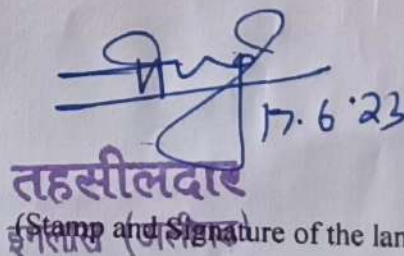 17.6.23
तहसीलदार
इगलास (अलीगढ़)
(Stamp and Signature of the lan